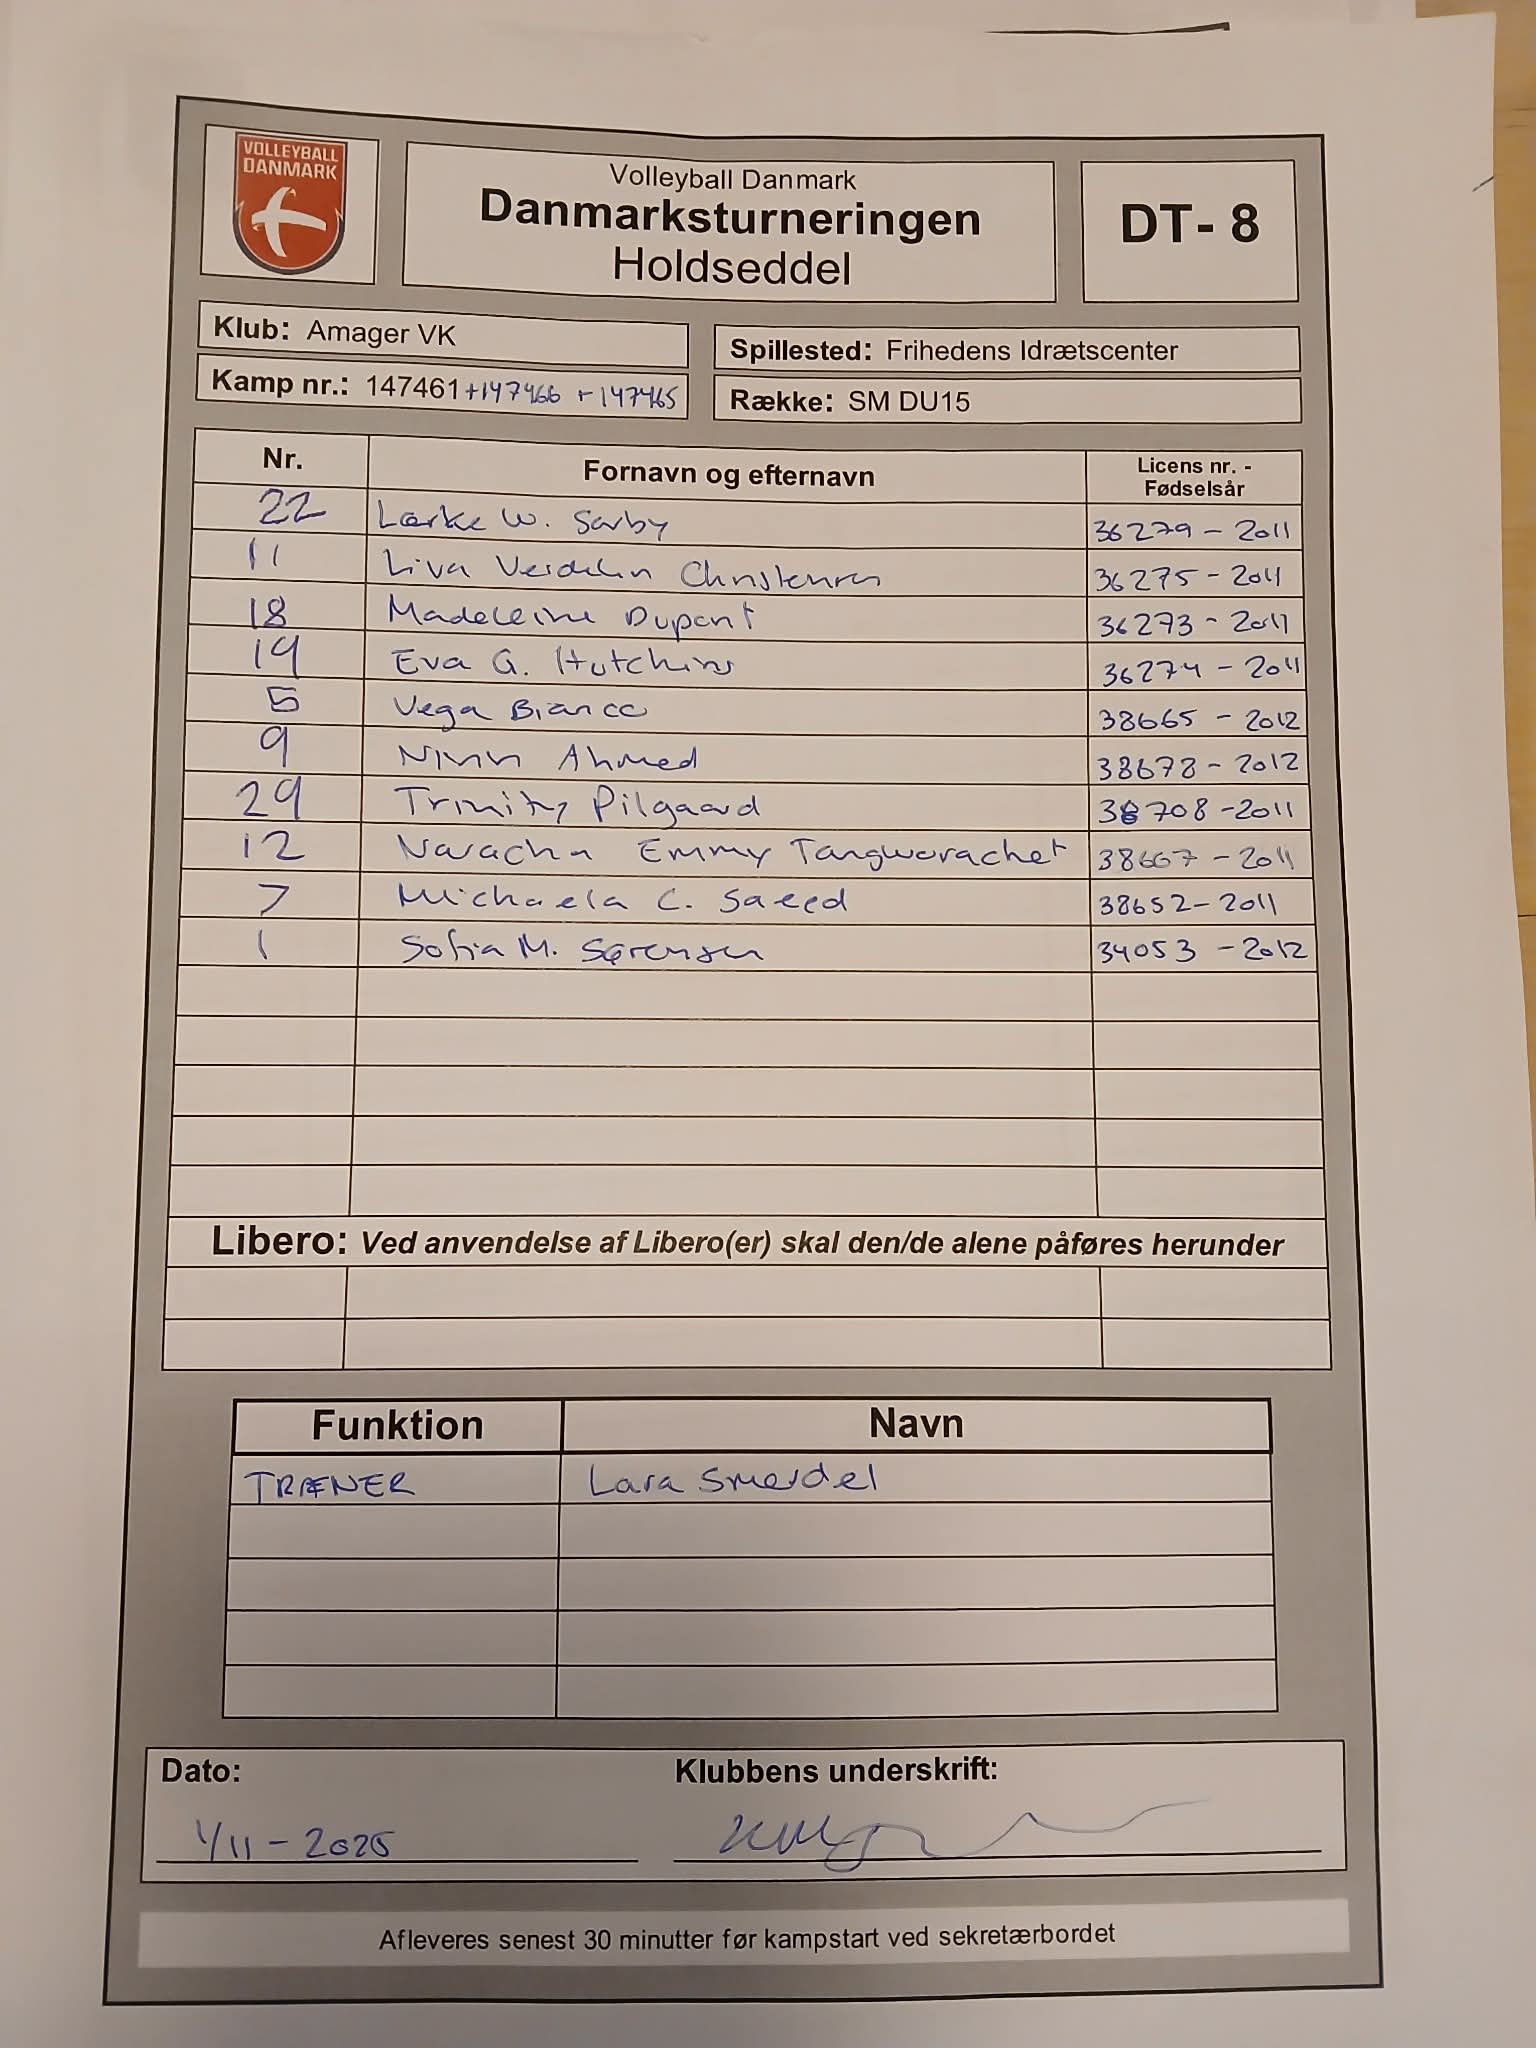 VOLLEYBALL
DANMARK
Volleyball Danmark
Danmarksturneringen
Holdseddel
DT- 8
Klub: Amager VK
Spillested: Frihedens Idrætscenter
Kamp nr.: 147461+147466 + 147465
Række: SM DU15
Nr. Fornavn og efternavn Licens nr. -
Fødselsår
22 Lærke W. Sørby 36279 - 2011
11 Liva Verdelin Christensen 36275 - 2011
18 Madeleine Dupont 36273 - 2011
19 Eva G. Hutchins 36274 - 2011
5 Vega Bianco 38665 - 2012
9 Ahmed 38678 - 2012
29 Trinity Pilgaard 38708 - 2011
12 Naracha Emmy Tangworachet 38667 - 2011
7 Michaela C. Saeed 38652 - 2011
1 Sofia M. Sørensen 34053 - 2012
Libero: Ved anvendelse af Libero(er) skal den/de alene påføres herunder
Funktion Navn
TRÆNER Lara Smerdel
Dato: Klubbens underskrift:
1/11 - 2025
Afleveres senest 30 minutter før kampstart ved sekretærbordet